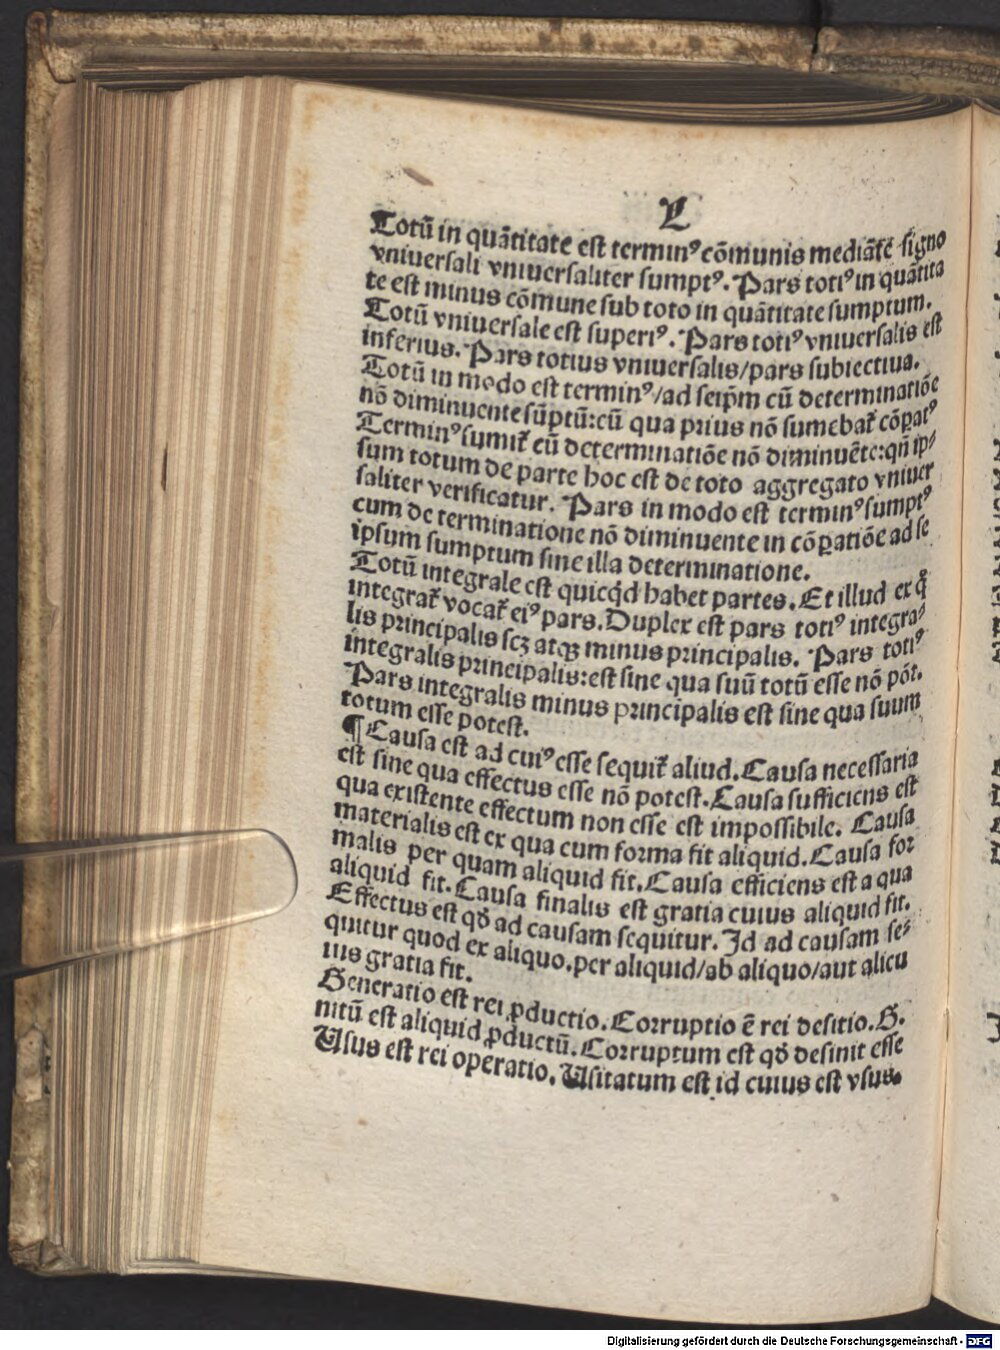 L
Totū in quātitate est terminꝰ cōmunis mediāte signo
vniuersali vniuersaliter sumptꝰ. Pars totiꝰ in quātita
te est minus cōmune sub toto in quātitate sumptum.
Totū vniuersale est superiꝰ. Pars totiꝰ vniuersalis est
inferius. Pars totius vniuersalis/pars subiectiua.
Totū in modo est terminꝰ/ad seip̄m cū determinatiōe
nō diminuente sūptū:cū qua prius nō sumebat᷑ cōꝑatꝰ
Terminꝰ sumit᷑ cū determinatiōe nō diminuēte:qn̄ ip⸗
sum totum de parte hoc est de toto aggregato vniuer
saliter verificatur. Pars in modo est terminꝰ sumptꝰ
cum determinatione nō diminuente in cōꝑatiōe ad se
ipsum sumptum sine illa determinatione.
Totū integrale est quicq̇d habet partes. Et illud ex q̊
integrat᷑ vocat᷑ eiꝰ pars. Duplex est pars totiꝰ integra⸗
lis principalis scꝫ atqꝫ minus principalis. Pars totiꝰ
integralis principalis:est sine qua suū totū esse nō pōt.
Pars integralis minus principalis est sine qua suum
totum esse potest.
¶ Causa est ad cuiꝰ esse sequit᷑ aliud. Causa necessaria
est sine qua effectus esse nō potest. Causa sufficiens est
qua existente effectum non esse est impossibile. Causa
materialis est ex qua cum forma fit aliquid. Causa for
malis per quam aliquid fit. Causa efficiens est a qua
aliquid fit. Causa finalis est gratia cuius aliquid fit.
Effectus est qd̄ ad causam sequitur. Id ad causam se⸗
quitur quod ex aliquo.per aliquid/ab aliquo/aut alicu
ius gratia fit.
Generatio est rei ꝓductio. Corruptio ē rei desitio. G.
nitū est aliquid ꝓductū. Corruptum est qd̄ desinit esse
Usus est rei operatio. Usitatum est id cuius est vsus.
Digitalisierung gefördert durch die Deutsche Forschungsgemeinschaft - DFG